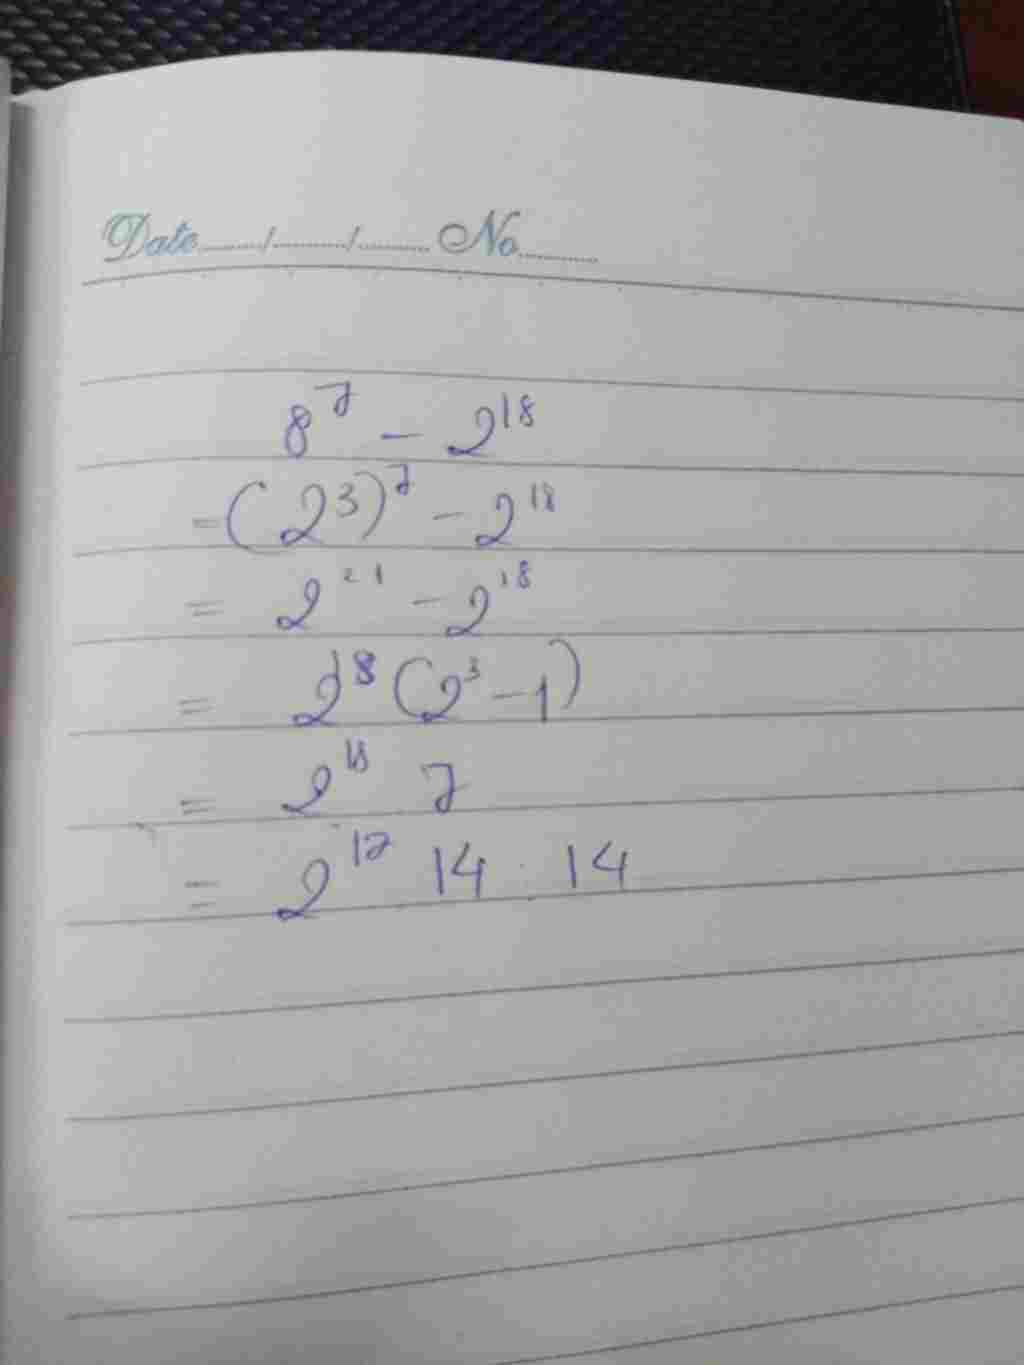 Date ....../....../...... No.......
8^7 - 2^18
= (2^3)^7 - 2^18
= 2^21 - 2^18
= 2^18 (2^3 - 1)
= 2^18 7
= 2^17 14 : 14